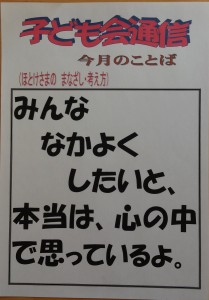 子ども会通信
今月のことば
(ほとけさまの まなざし・考え方)
みんな
なかよく
したいと、
本当は、心の中
で思っているよ。